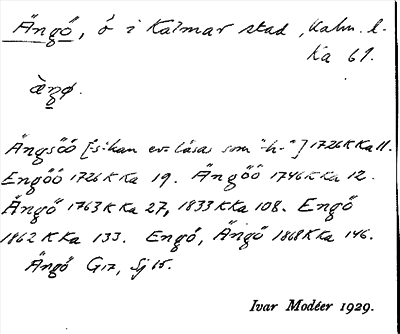 Ängö, ö i Kalmar stad, Kalm. l.
Ka 61.
æŋø.
Ängsöö [s kan ev. läsas som "-h-"] 1726 K Ka 11.
Engöö 1726 K Ka 19. Ängöö 1746 K Ka 12.
Ängö 1763 K Ka 27, 1833 K Ka 108. Engö
1862 K Ka 133. Engö, Ängö 1868 K Ka 146.
Ängö G17, Sj 15.
Ivar Modéer 1929.